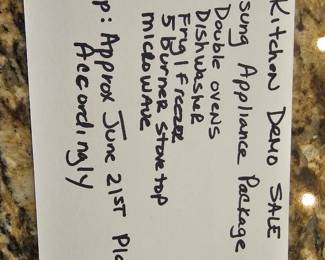 Kitchen Demo Sale
sung Appliance Package
Double ovens
Dishwasher
Frig/Freezer
5 burner stove top
microwave
p: Approx June 21st Pla
Accordingly